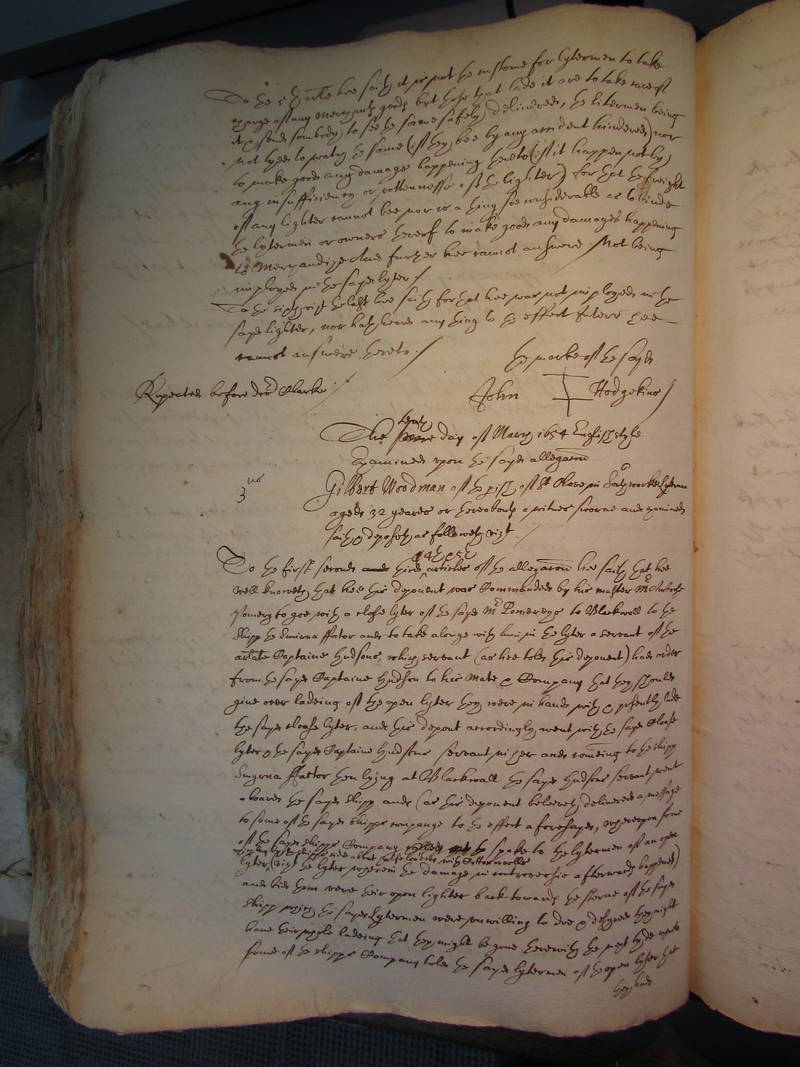 To the 5th arte hee saith it is not the custome for lytermen to take
charge of any merchants goods but those that lade it are to take care of
it & send somebody to see the same safely delivered, the litermen being
not tyed to protect the same (if they bee by any accident hindered) nor
to make good any damage happening thereto (if it happen not by
any insufficiency or rottennesse of the lighter) for that the freight
of any lighter cannot bee nor is a thing soe considerable as to binde
the lytermen or owners thereof to make good any damages happening
to merchandize And further hee cannot answere Not being
imployed in the sayd lyter /
To the sixt the last hee saith for that hee was not imployed in the
sayd lighter, nor hath heard any thing to the effect hee
cannot answere hereto. /
the marke of the sayd
Repeated before dr Clarke /
John Hodgekins /
The day of March 1654 English style
Examined upon the sayd allegaon
3us
Gilbert Woodman of the pish of St Olave in Southwarke lyterman
aged 32 yeares or thereabouts a witnes sworne and examined
saith & deposeth as followeth vizt /
4th & 5th
To the first second and third articles of the allegaon hee saith that hee
well knoweth that hee this deponent was Commanded by his master Mr
Pomeroy to goe with a close lyter of the sayd Mr Pomeroys to Blackwall to the
shipp the Smirna ffactor and to take alonge with him in the lyter a servant of the
arlate Captaine Hudsons, which servant (as hee told this deponent) had order
from the sayd Captaine Hudson to his Mate & Company that they should
give over ladeing of the open lyter they were in hand with & presently lade
the sayd close lyter, and this depont accordingly went with the sayd close
lyter & the sayd Captaine Hudsons servant in her and coming to the shipp
Smyrna ffactor then lying at Blackwall the sayd Hudsons servant went
aboard the sayd shipp and (as this deponent beleeveth) delivered a message
to some of the sayd shipps company to the effect aforesayd, whereupon some
of the sayd shipps Company spake to the lytermen of an open
lyter (vizt the lyter wherein the damage in controversie afterwards happened)
and bid them veere their open lighter back towards the sterne of the sayd
shipp which the sayd lytermen were unwilling to doe & desired they might
have their whole ladeing that they might be gone therewith the next tyde
some of the shipps Company told the sayd lytermen of the open lyter that
they had